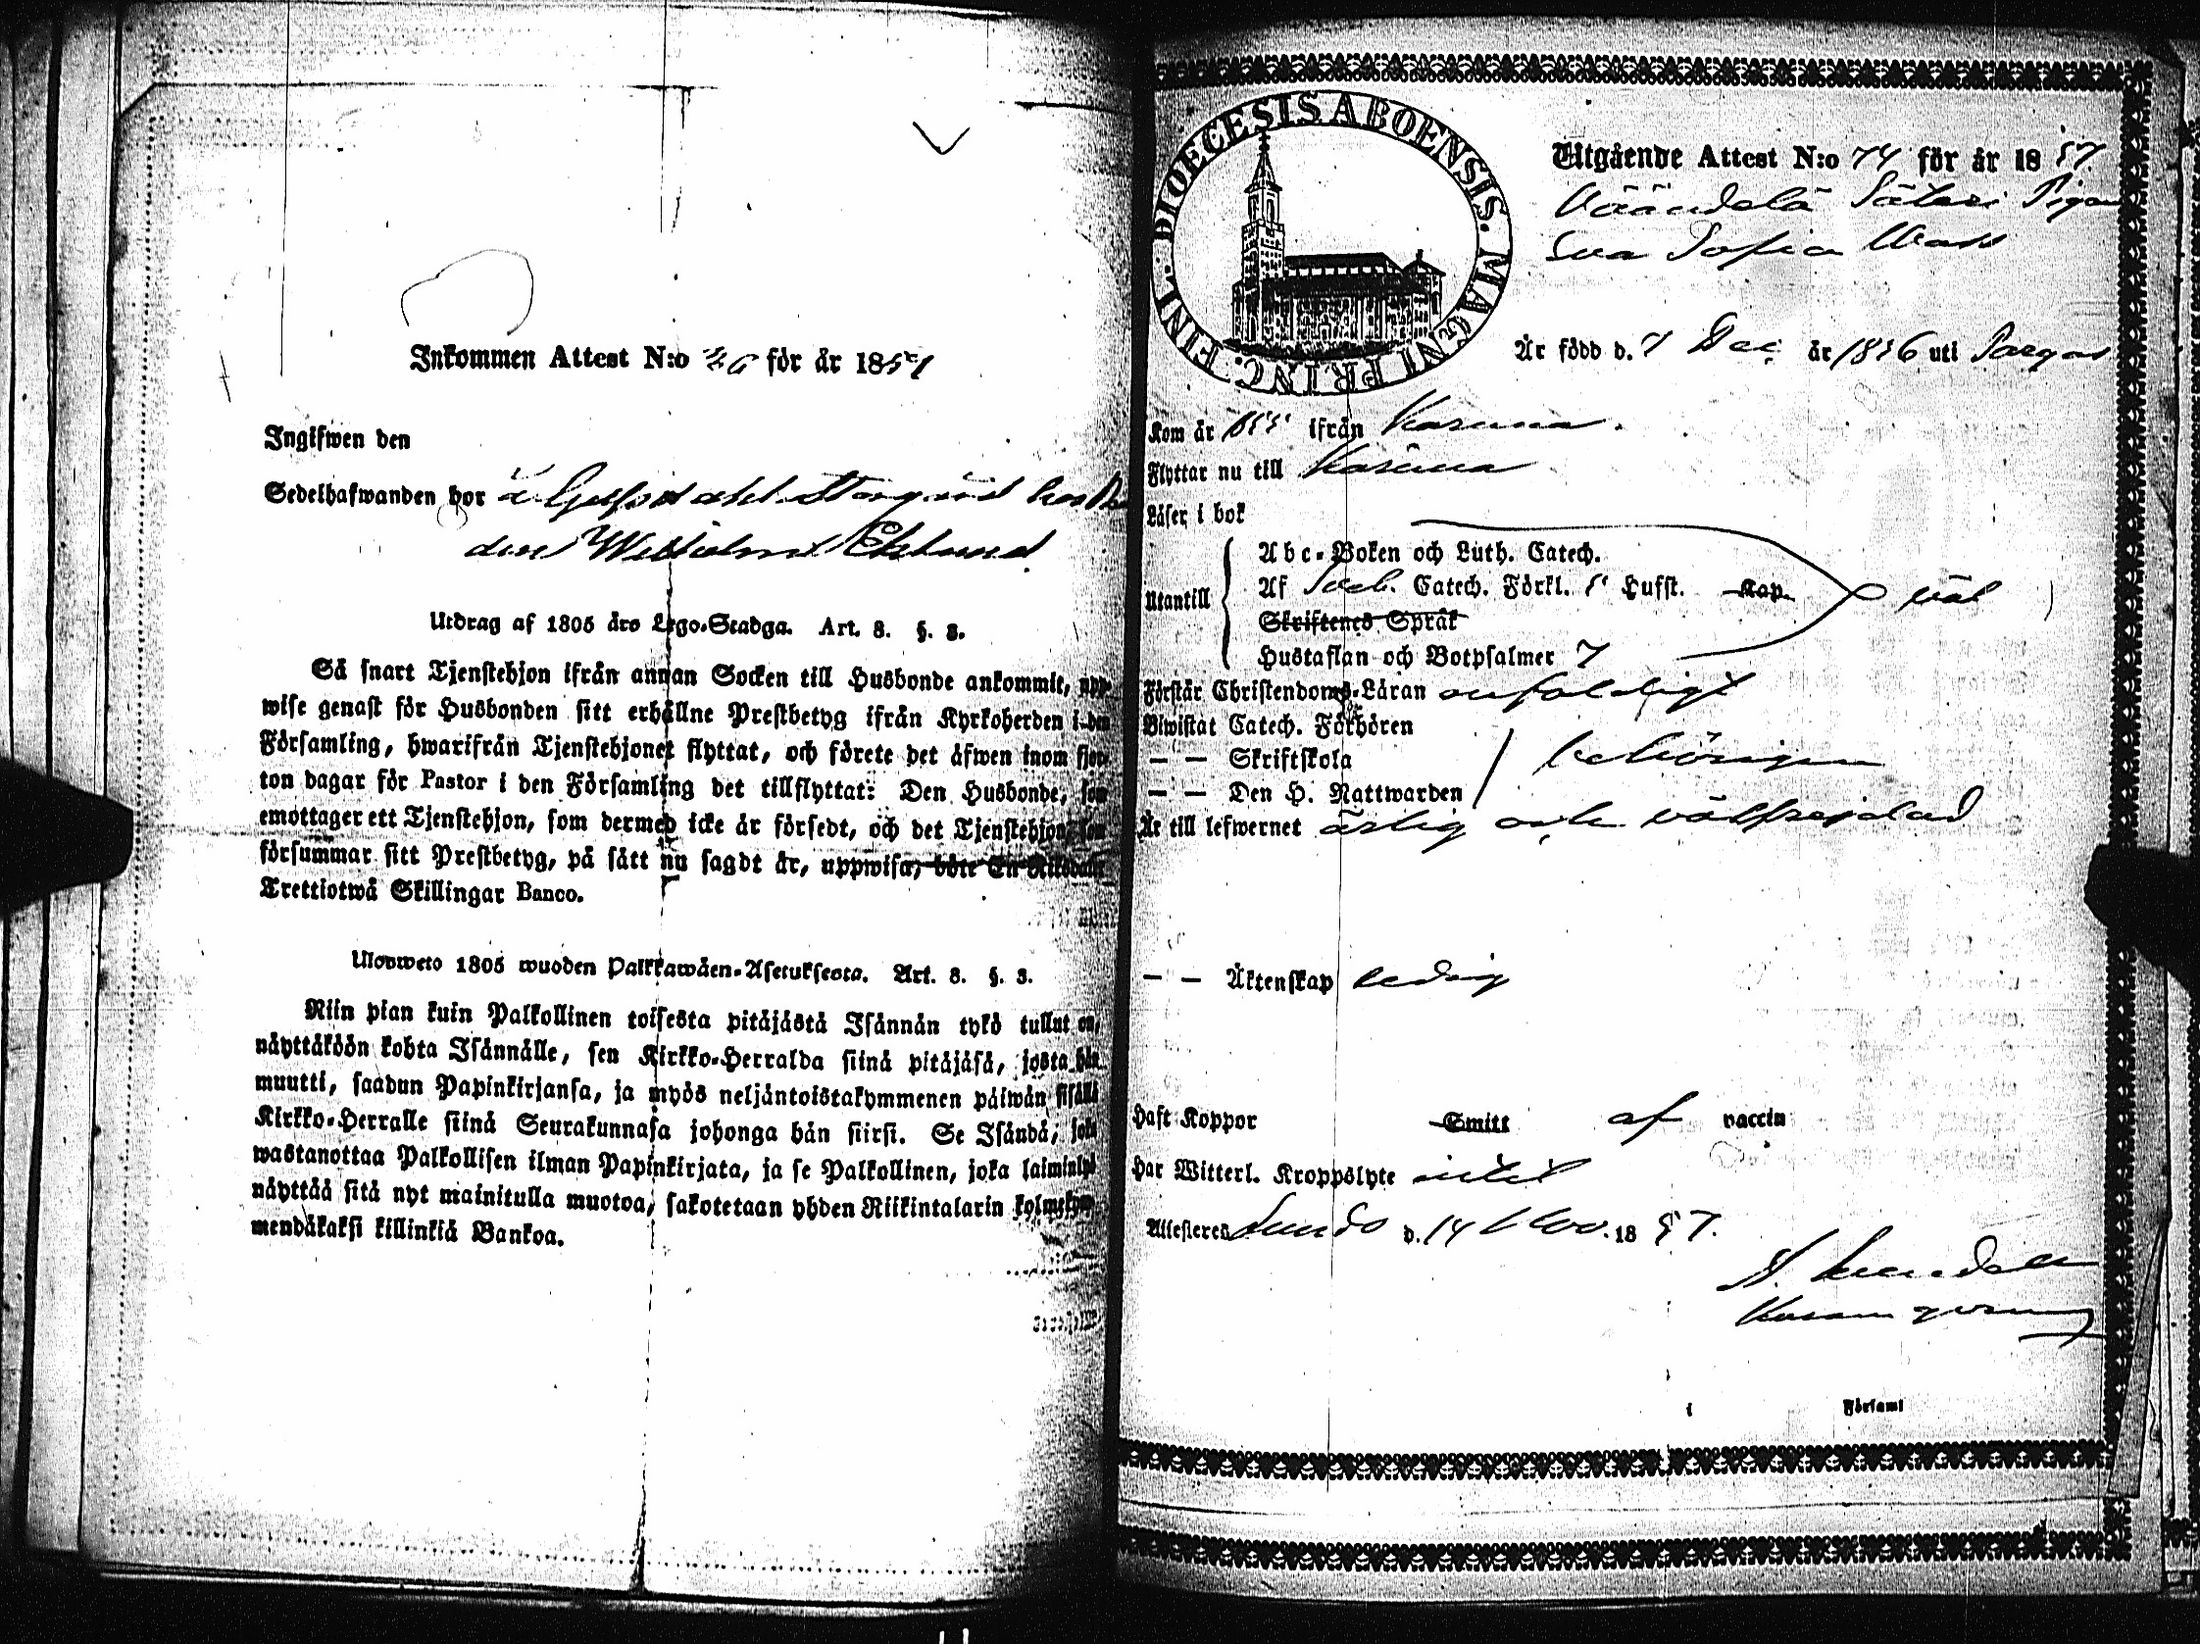 Inkommen Attest N:o för år 1857
Ingifwen den
Sedelhafwanden bor å
den Wilhelm Eklund
Utdrag af 1805 års Lego-Stadga. Art. 8. §. 3.
Så snart Tjenstehjon ifrån annan Socken till Husbonde ankommit, upp-
wise genast för Husbonden sitt erhållne Prestbetyg ifrån Kyrkoherden i den
Församling, hwarifrån Tjenstehjonet flyttat, och förete det äfwen inom fjor-
ton dagar för Pastor i den Församling det tillflyttat: Den Husbonde, som
emottager ett Tjenstehjon, som dermed icke är försedt, och det Tjenstehjon, som
försummar sitt Prestbetyg, på sätt nu sagdt är, uppwisa, böte En Riksdaler
Trettiotwå Skillingar Banco.
Ulosweto 1805 wuoden Palkkawäen-Asetuksesta. Art. 8. §. 3.
Niin pian kuin Palkollinen toisesta pitäjästä Isännän tykö tullut on,
näyttäköön kohta Isännälle, sen Kirkko-Herralda siinä pitäjäsä, josta hän
muutti, saadun Papinkirjansa, ja myös neljäntoistakymmenen päiwän sisällä
Kirkko-Herralle siinä Seurakunnasa johonga hän siirsi. Se Isändä, joka
wastanottaa Palkollisen ilman Papinkirjata, ja se Palkollinen, joka laiminlyö
näyttää sitä nyt mainitulla muotoa, sakotetaan yhden Riikintalarin kolmekym-
mendäkaksi killinkiä Bankoa.
DIOECESIS ABOENSIS. MAGNI PRINC. FINL.
Utgående Attest N:o 74 för år 1857
Väändelä Säteri Pigan
Eva Sofia
Är född d. 7 Dec. år 1836 uti Pargas
Kom år 1855 ifrån Karuna.
Flyttar nu till Karuna
Läser i bok
Utantill
Abc-Boken och Luth. Catech.
Af Sveb. Catech. Förkl. 5 Hufst. Kap.
Skriftenes Språk
Hustaflan och Botpsalmer 7
väl
Förstår Christendoms-Läran enfaldigt
Biwistat Catech. Förhören
— — Skriftskola
— — Den H. Nattwarden
behörigen
Är till lefwernet ärlig och välfrejdad
— — Äktenskap ledig
Haft Koppor Smitt af vaccin
Har Witterl. Kroppslyte intet
Attesteres Lundo d. 14 Nov. 1857.
i Församl